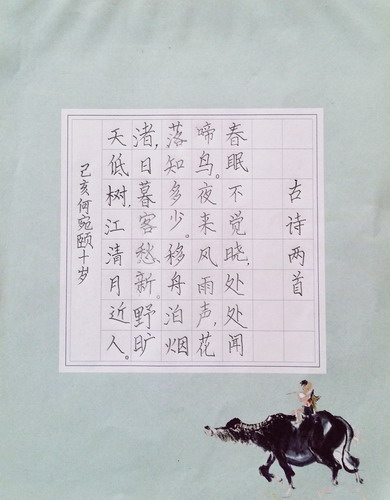 古诗两首
春眠不觉晓,处处闻
啼鸟。夜来风雨声,花
落知多少。移舟泊烟
渚,日暮客愁新。野旷
天低树,江清月近人。
己亥何宛颐十岁